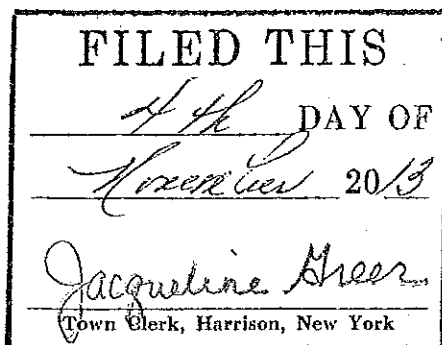 FILED THIS
4th DAY OF
November 2013
Jacqueline Greer
Town Clerk, Harrison, New York